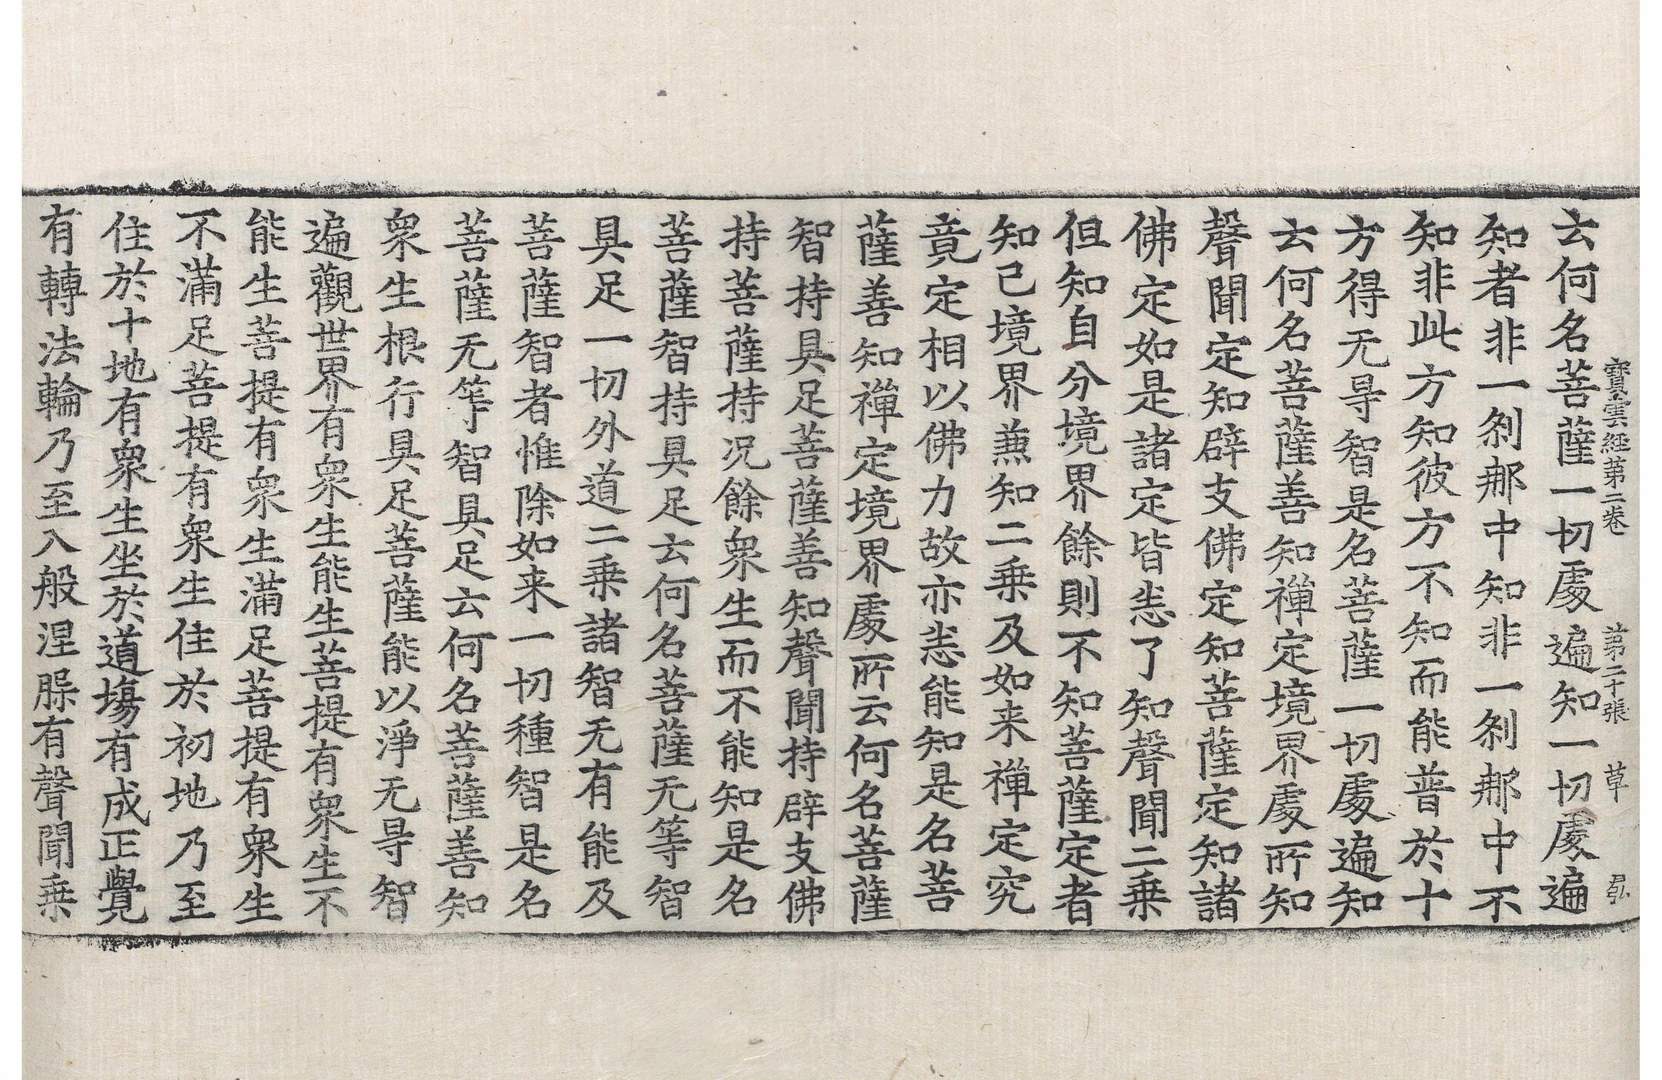 寶雲經第二卷 第二十張 草 弘
云何名菩薩一切處遍知一切處遍
知者非一刹那中知非一刹那中不
知非此方知彼方不知而能普於十
方得无㝵智是名菩薩一切處遍知
云何名菩薩善知禪定境界處所知
聲聞定知辟支佛定知菩薩定知諸
佛定如是諸定皆悉了知聲聞二乗
但知自分境界餘則不知菩薩定者
知己境界兼知二乗及如来禪定究
竟定相以佛力故亦悉能知是名菩
薩善知禪定境界處所云何名菩薩
智持具足菩薩善知聲聞持辟支佛
持菩薩持况餘衆生而不能知是名
菩薩智持具足云何名菩薩无等智
具足一切外道二乗諸智无有能及
菩薩智者惟除如来一切種智是名
菩薩无等智具足云何名菩薩善知
衆生根行具足菩薩能以淨无㝵智
遍觀世界有衆生能生菩提有衆生不
能生菩提有衆生滿足菩提有衆生
不滿足菩提有衆生住於初地乃至
住於十地有衆生坐於道場有成正覺
有轉法輪乃至入般涅槃有聲聞乗